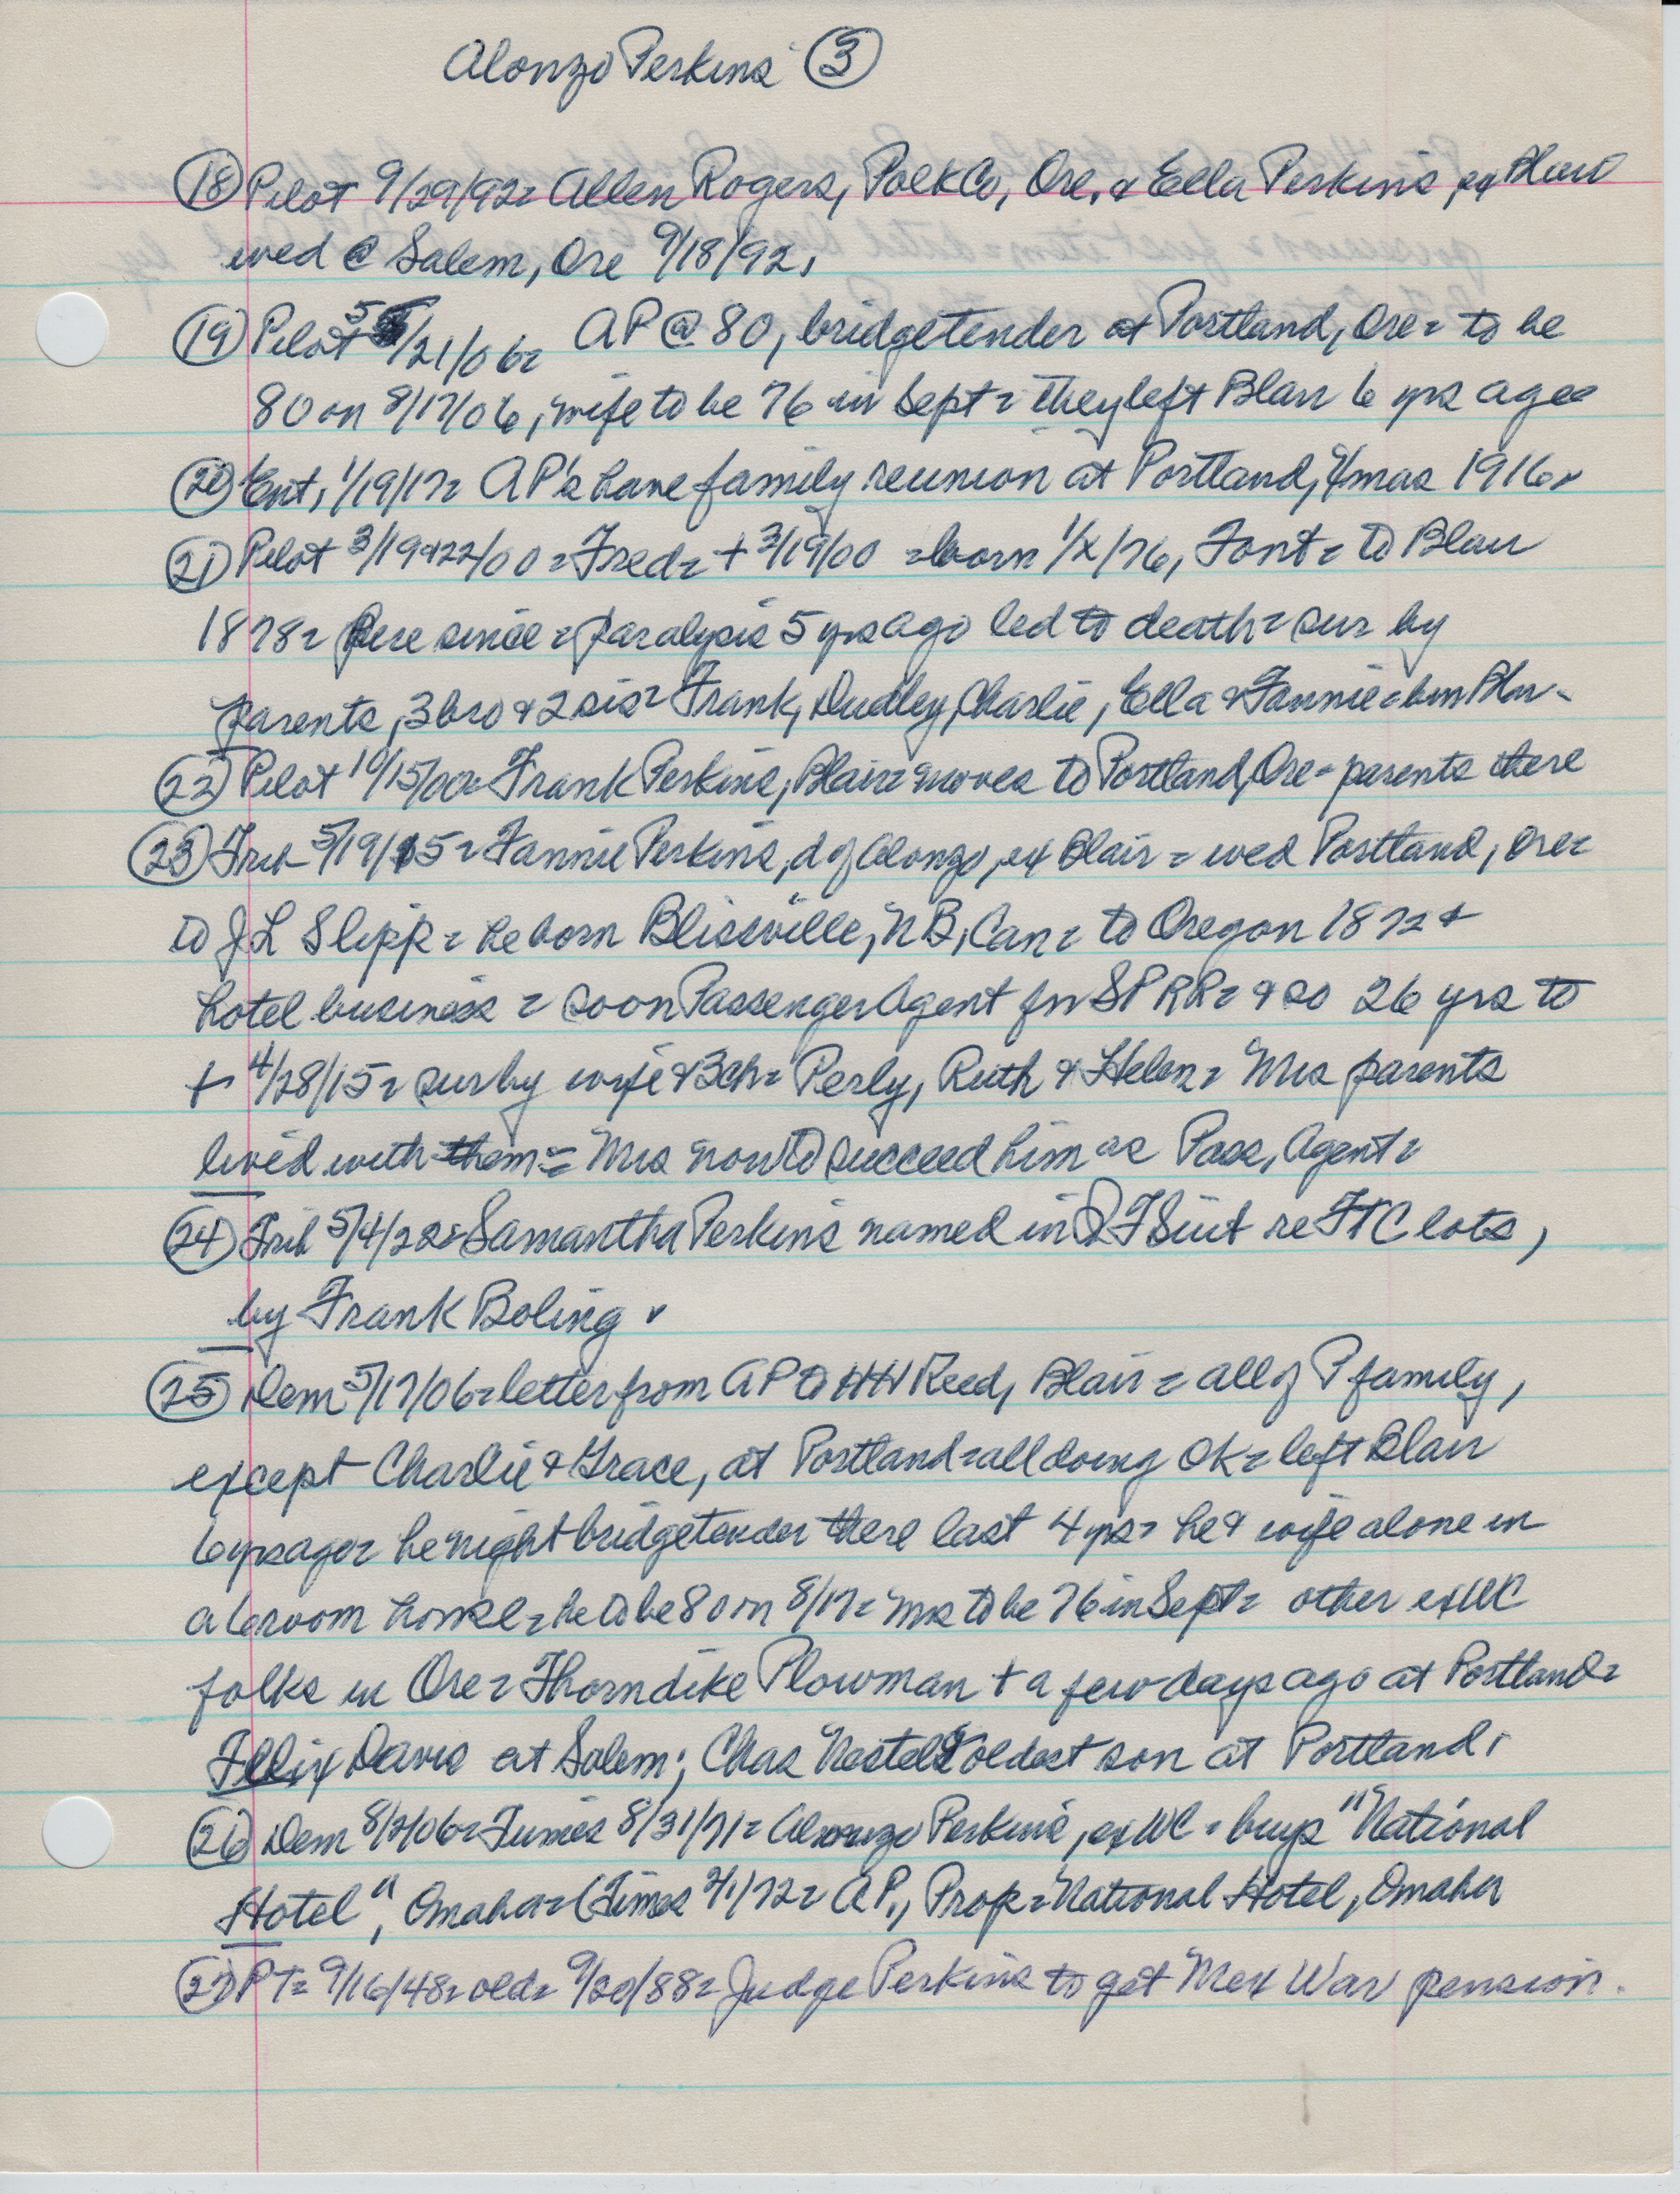 Alonzo Perkins (3)
(18) Pilot 9/29/92= Allen Rogers, Polk Co, Ore, & Ella Perkins, ex Blair
wed @ Salem, Ore 9/18/92.
(19) Pilot 5/21/06= AP @ 80, bridgetender at Portland, Ore= to be
80 on 8/17/06, wife to be 76 in Sept= they left Blair 6 yrs ago=
(20) Ent, 1/19/17= AP's have family reunion at Portland, Xmas 1916.
(21) Pilot 3/19&22/00= Fred= + 3/19/00 =born 1/X/76, Font= to Blair
1878= here since= paralysis 5 yrs ago led to death= sur by
parents, 3 bro & 2 sis= Frank, Dudley, Charlie, Ella & Fannie=
(22) Pilot 10/15/00= Frank Perkins, Blair= moves to Portland, Ore= parents there
(23) Trib 5/19/15= Fannie Perkins, d of Alonzo, ex Blair= wed Portland, Ore=
to JL Slipp= he born Blissville, NB, Can= to Oregon 1872 &
hotel business= soon Passenger Agent for SPRR= & so 26 yrs to
+ 4/28/15= sur by wife & 3ch= Perly, Ruth & Helen= Mrs parents
lived with them= Mrs now to succeed him as Pass, Agent=
(24) Trib 5/4/22= Samantha Perkins named in QT Suit re FTC lots,
by Frank Boling.
(25) Dem 5/17/06= letter from AP to HH Reed, Blair= all of P family,
except Charlie & Grace, at Portland= all doing OK= left Blair
6 yrs ago= he night bridgetender there last 4 yrs= he & wife alone in
a 6 room house= he to be 80 on 8/17= Mrs to be 76 in Sept= other ex WC
folks in Ore= Thorndike Plowman + a few days ago at Portland=
Felix Davis at Salem; Chas oldest son at Portland.
(26) Dem 8/2/06= Times 8/31/71= Alonzo Perkins, ex WC= buys "National
Hotel", Omaha= (Times 2/1/72= AP., Prop= National Hotel, Omaha
(27) PT= 9/16/48= old= 9/20/88= Judge Perkins to get Mex War pension.